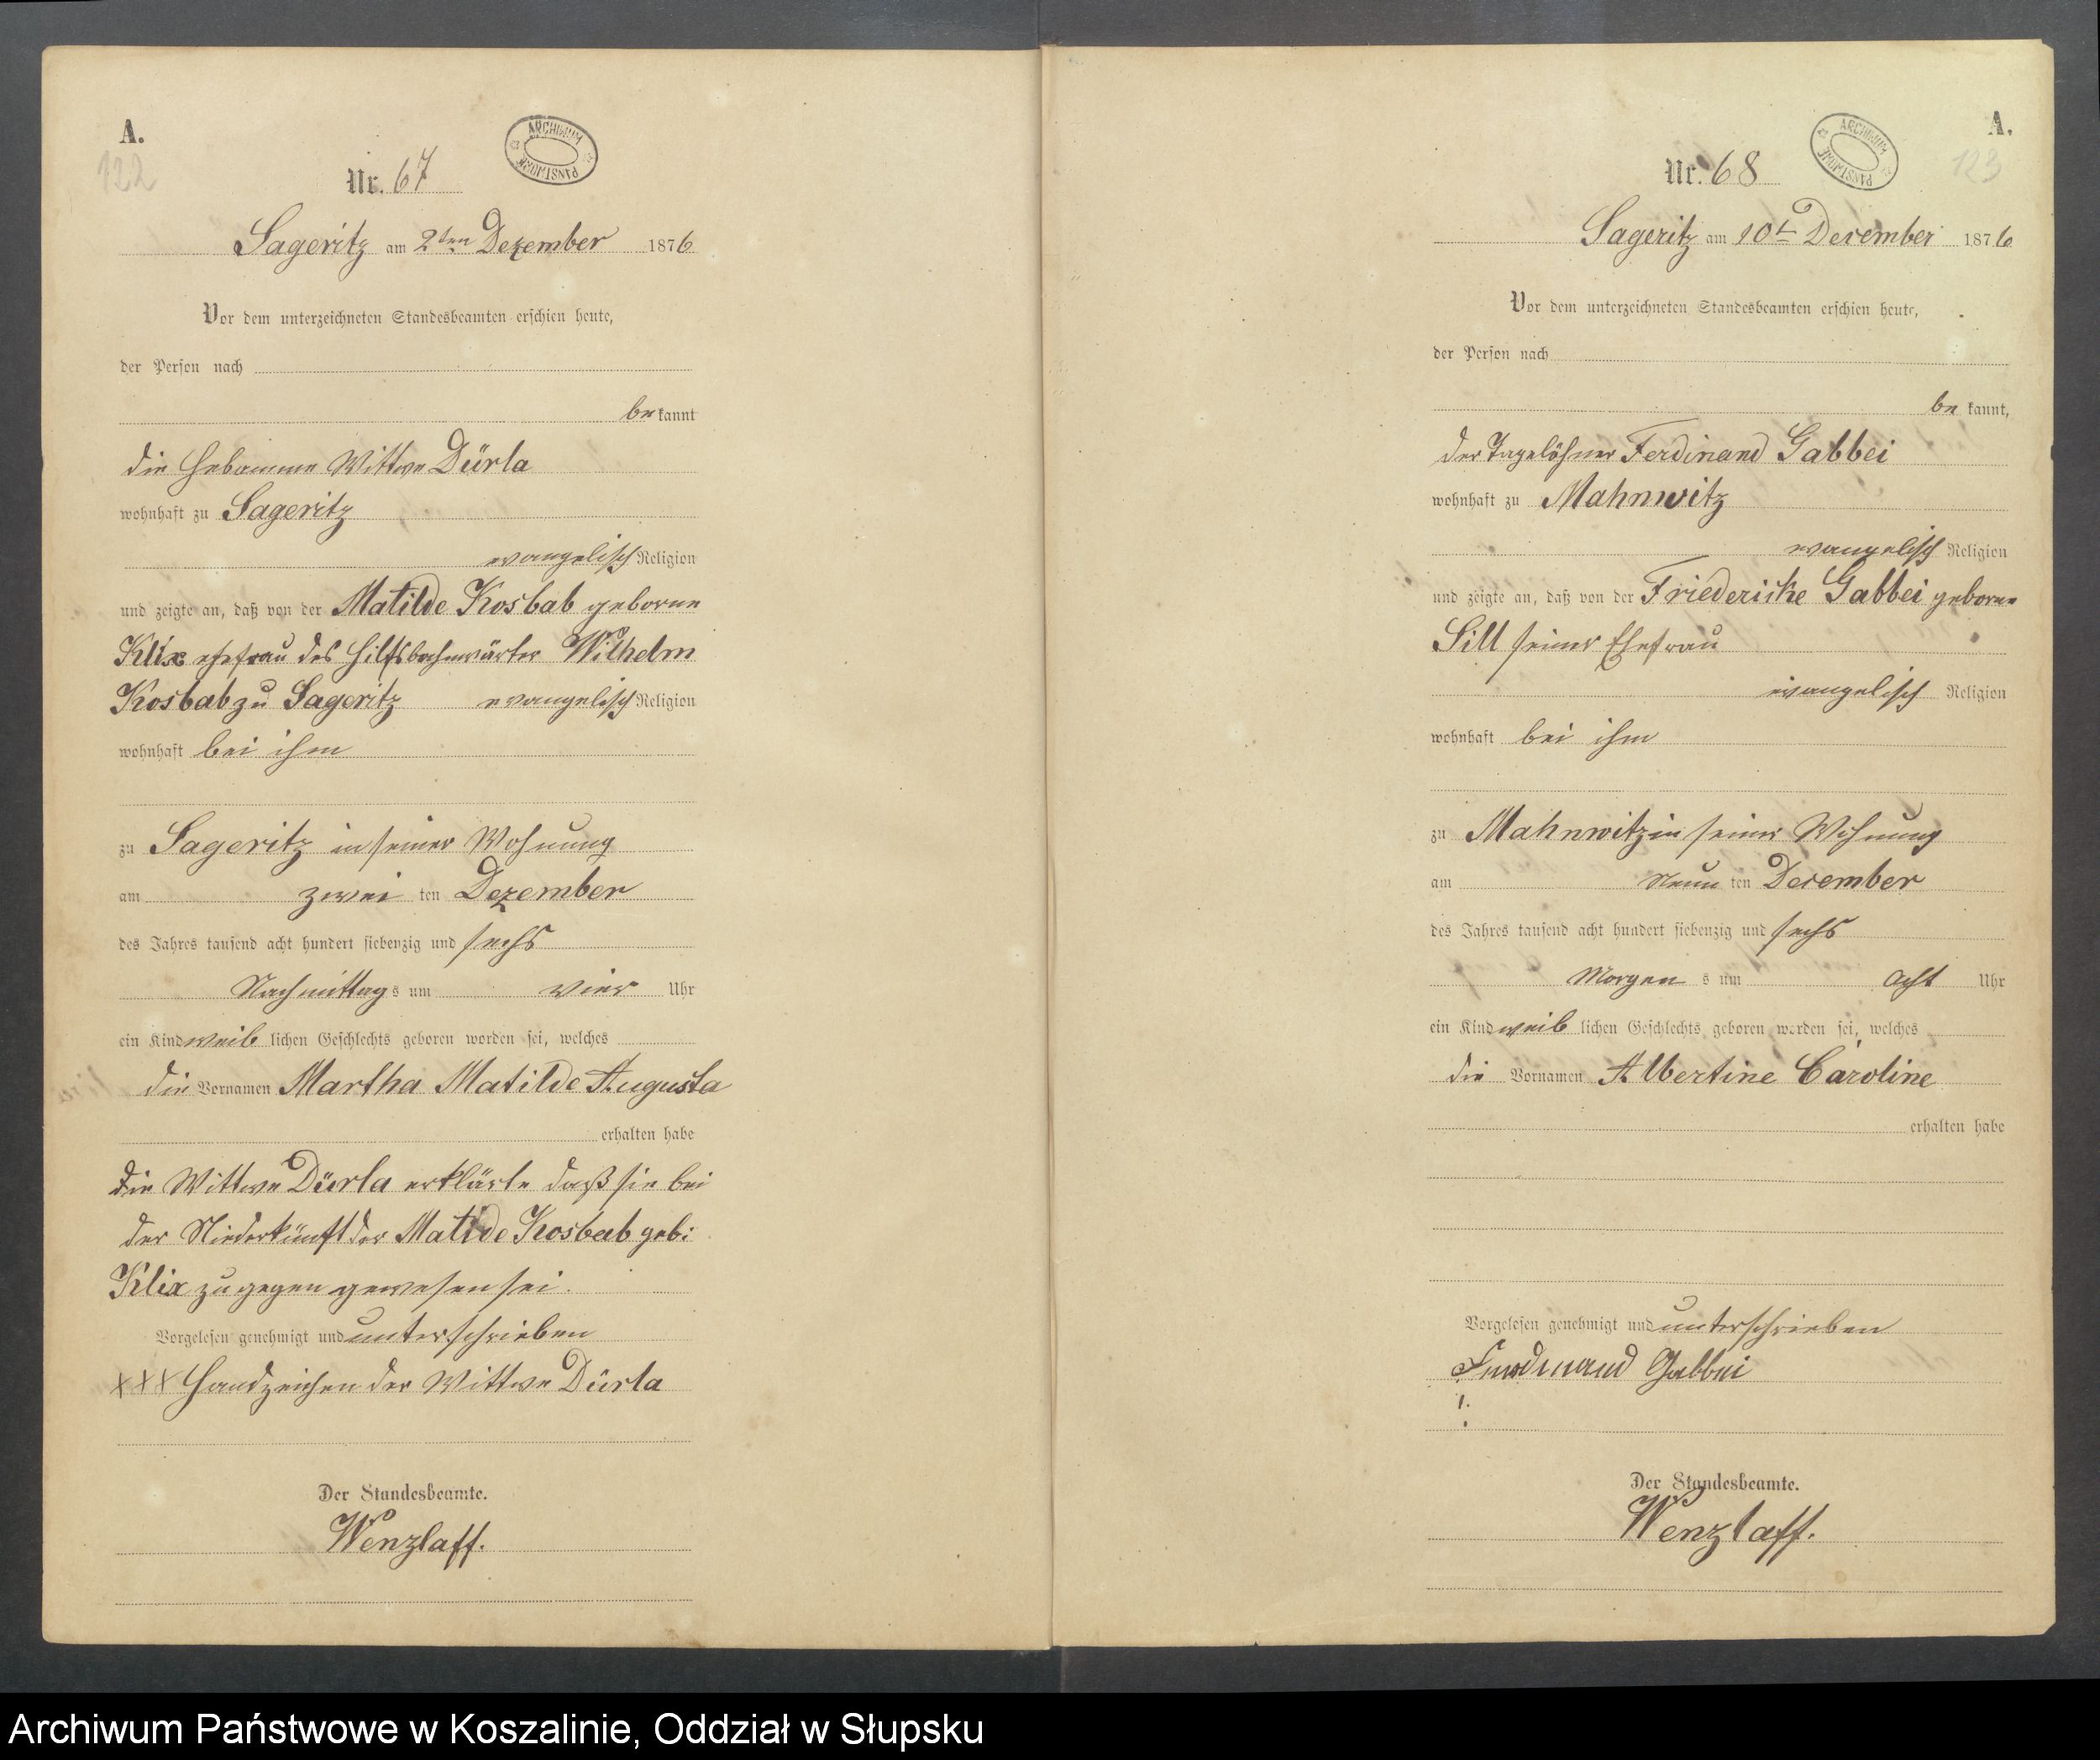 A.
122
ARCHIWUM PAŃSTWOWE
Nr. 67
Sageritz am 2ten Dezember 1876
Vor dem unterzeichneten Standesbeamten erschien heute,
der Person nach
bekannt
die Hebamme Wittwe Dürla
wohnhaft zu Sageritz
evangelisch Religion
und zeigte an, daß von der Matilde Kosbab geborne
Klix ehefrau des Hilfsbahnwärter Wilhelm
Kosbab zu Sageritz evangelisch Religion
wohnhaft bei ihm
zu Sageritz in seiner Wohnung
am zwei ten Dezember
des Jahres tausend acht hundert siebenzig und sechs
Nachmittags um vier Uhr
ein Kind weiblichen Geschlechts geboren worden sei, welches
die Vornamen Martha Matilde Augusta
erhalten habe
die Wittwe Dürla erklärte daß sie bei
der Niederkunft der Matilde Kosbab geb:
Klix zugegen gewesen sei.
Vorgelesen genehmigt und unterschrieben
XXX Handzeichen der Wittwe Dürla
Der Standesbeamte.
Wenzlaff.
A.
123
ARCHIWUM PAŃSTWOWE
Nr. 68
Sageritz am 10t December 1876
Vor dem unterzeichneten Standesbeamten erschien heute,
der Person nach
be kannt,
der Tagelöhner Ferdinand Gabbei
wohnhaft zu Mahnwitz
evangelisch Religion
und zeigte an, daß von der Friedericke Gabbei geborne
Sill seiner Ehefrau
evangelisch Religion
wohnhaft bei ihm
zu Mahnwitz in seiner Wohnung
am Neun ten December
des Jahres tausend acht hundert siebenzig und sechs
Morgen s um Acht Uhr
ein Kind weiblichen Geschlechts geboren worden sei, welches
die Vornamen Albertine Caroline
erhalten habe
Vorgelesen genehmigt und unterschrieben
Ferdinand Gabbei
Der Standesbeamte.
Wenzlaff.
Archiwum Państwowe w Koszalinie, Oddział w Słupsku